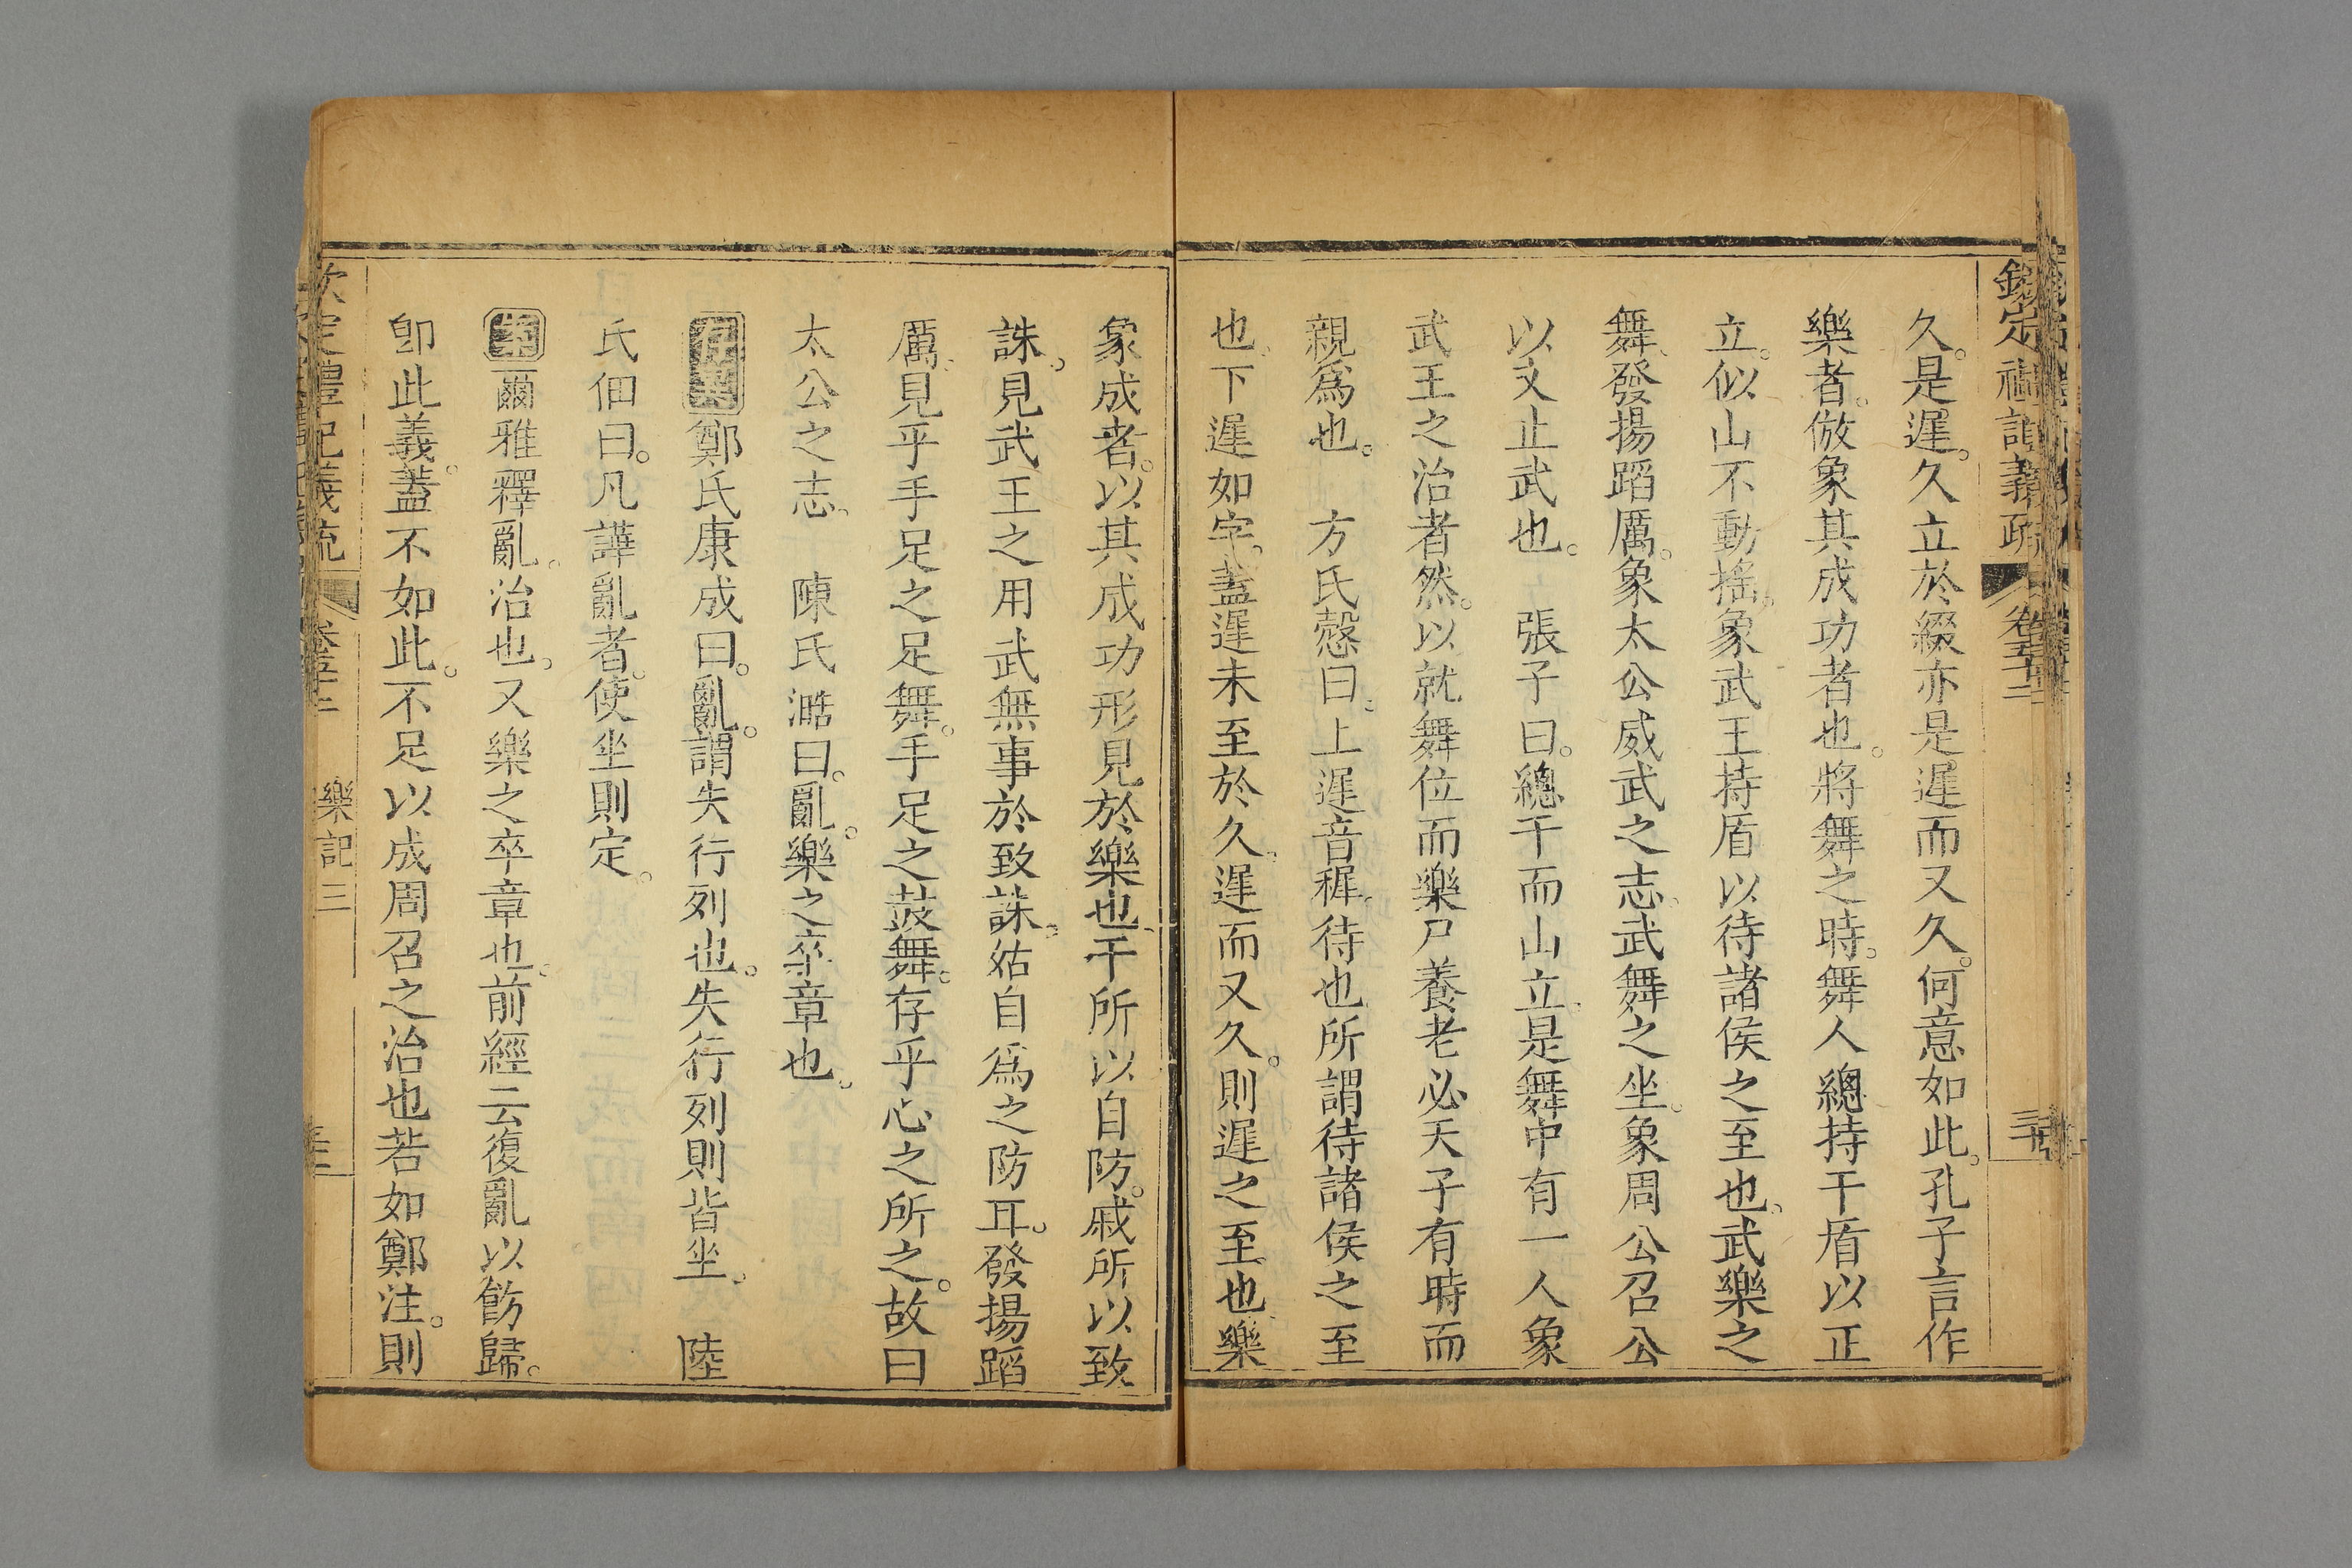 欽定禮記義疏 卷五十二
久。是遲。久立於綴亦是遲而又久。何意如此。孔子言作
樂者。倣象其成功者也。將舞之時。舞人總持干盾以正
立。似山不動搖。象武王持盾以待諸侯之至也。武樂之
舞、發揚蹈厲。象太公威武之志。武舞之坐。象周公召公
以文止武也。　張子曰。總干而山立、是舞中有一人象
武王之治者然。以就舞位而樂尸養老必天子有時而
親爲也。　方氏慤曰。上遲音穉。待也所謂待諸侯之至
也。下遲如字。蓋遲未至於久。遲而又久。則遲之至也、樂
象成者。以其成功形見於樂也、干所以自防。戚所以致
誅。見武王之用武無事於致誅。姑自爲之防耳。發揚蹈
厲、見乎手足之足舞。手足之鼓舞。存乎心之所之。故曰
太公之志。　陳氏澔曰。亂。樂之卒章也。
存異鄭氏康成曰。亂。謂失行列也。失行列則皆坐。　陸
氏佃曰。凡譁亂者。使坐則定。
案爾雅釋亂。治也。又樂之卒章也。前經云復亂以飭歸。
卽此義。蓋不如此。不足以成周召之治也若如鄭注。則
欽定禮記義疏 樂記三